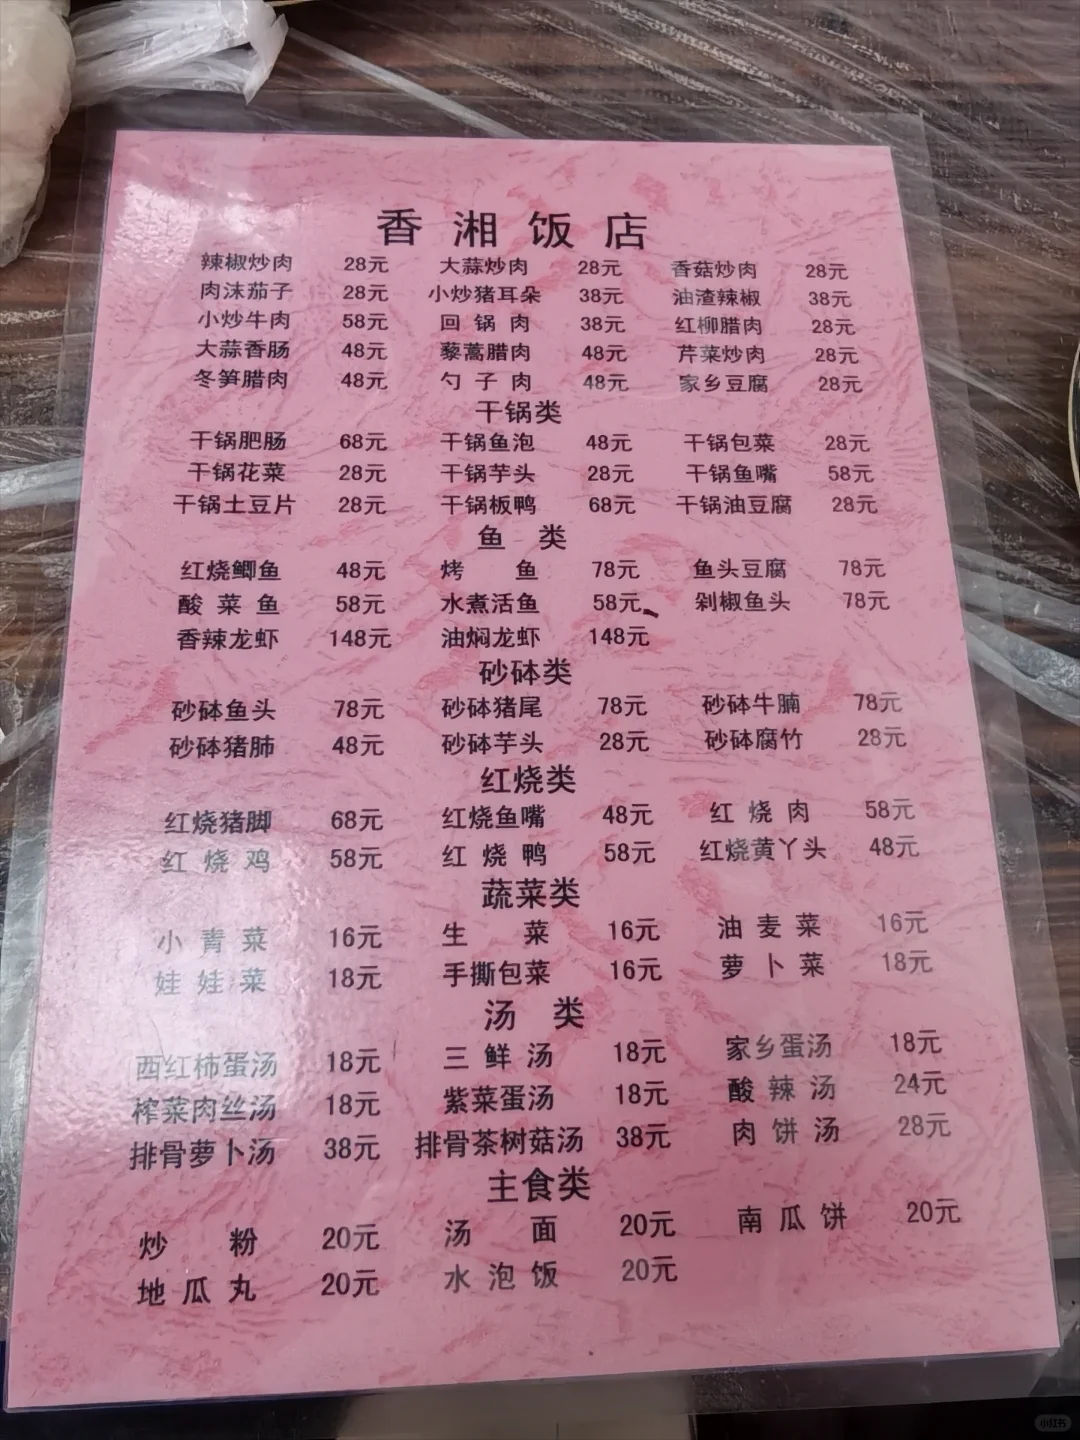 香湘饭店
辣椒炒肉 28元 大蒜炒肉 28元 香菇炒肉 28元
肉沫茄子 28元 小炒猪耳朵 38元 油渣辣椒 38元
小炒牛肉 58元 回锅肉 38元 红柳腊肉 28元
大蒜香肠 48元 藜蒿腊肉 48元 芹菜炒肉 28元
冬笋腊肉 48元 勺子肉 48元 家乡豆腐 28元
干锅类
干锅肥肠 68元 干锅鱼泡 48元 干锅包菜 28元
干锅花菜 28元 干锅芋头 28元 干锅鱼嘴 58元
干锅土豆片 28元 干锅板鸭 68元 干锅油豆腐 28元
鱼类
红烧鲫鱼 48元 烤鱼 78元 鱼头豆腐 78元
酸菜鱼 58元 水煮活鱼 58元 剁椒鱼头 78元
香辣龙虾 148元 油焖龙虾 148元
砂钵类
砂钵鱼头 78元 砂钵猪尾 78元 砂钵牛腩 78元
砂钵猪肺 48元 砂钵芋头 28元 砂钵腐竹 28元
红烧类
红烧猪脚 68元 红烧鱼嘴 48元 红烧肉 58元
红烧鸡 58元 红烧鸭 58元 红烧黄丫头 48元
蔬菜类
小青菜 16元 生菜 16元 油麦菜 16元
娃娃菜 18元 手撕包菜 16元 萝卜菜 18元
汤类
西红柿蛋汤 18元 三鲜汤 18元 家乡蛋汤 18元
榨菜肉丝汤 18元 紫菜蛋汤 18元 酸辣汤 24元
排骨萝卜汤 38元 排骨茶树菇汤 38元 肉饼汤 28元
主食类
炒粉 20元 汤面 20元 南瓜饼 20元
地瓜丸 20元 水泡饭 20元
小红书